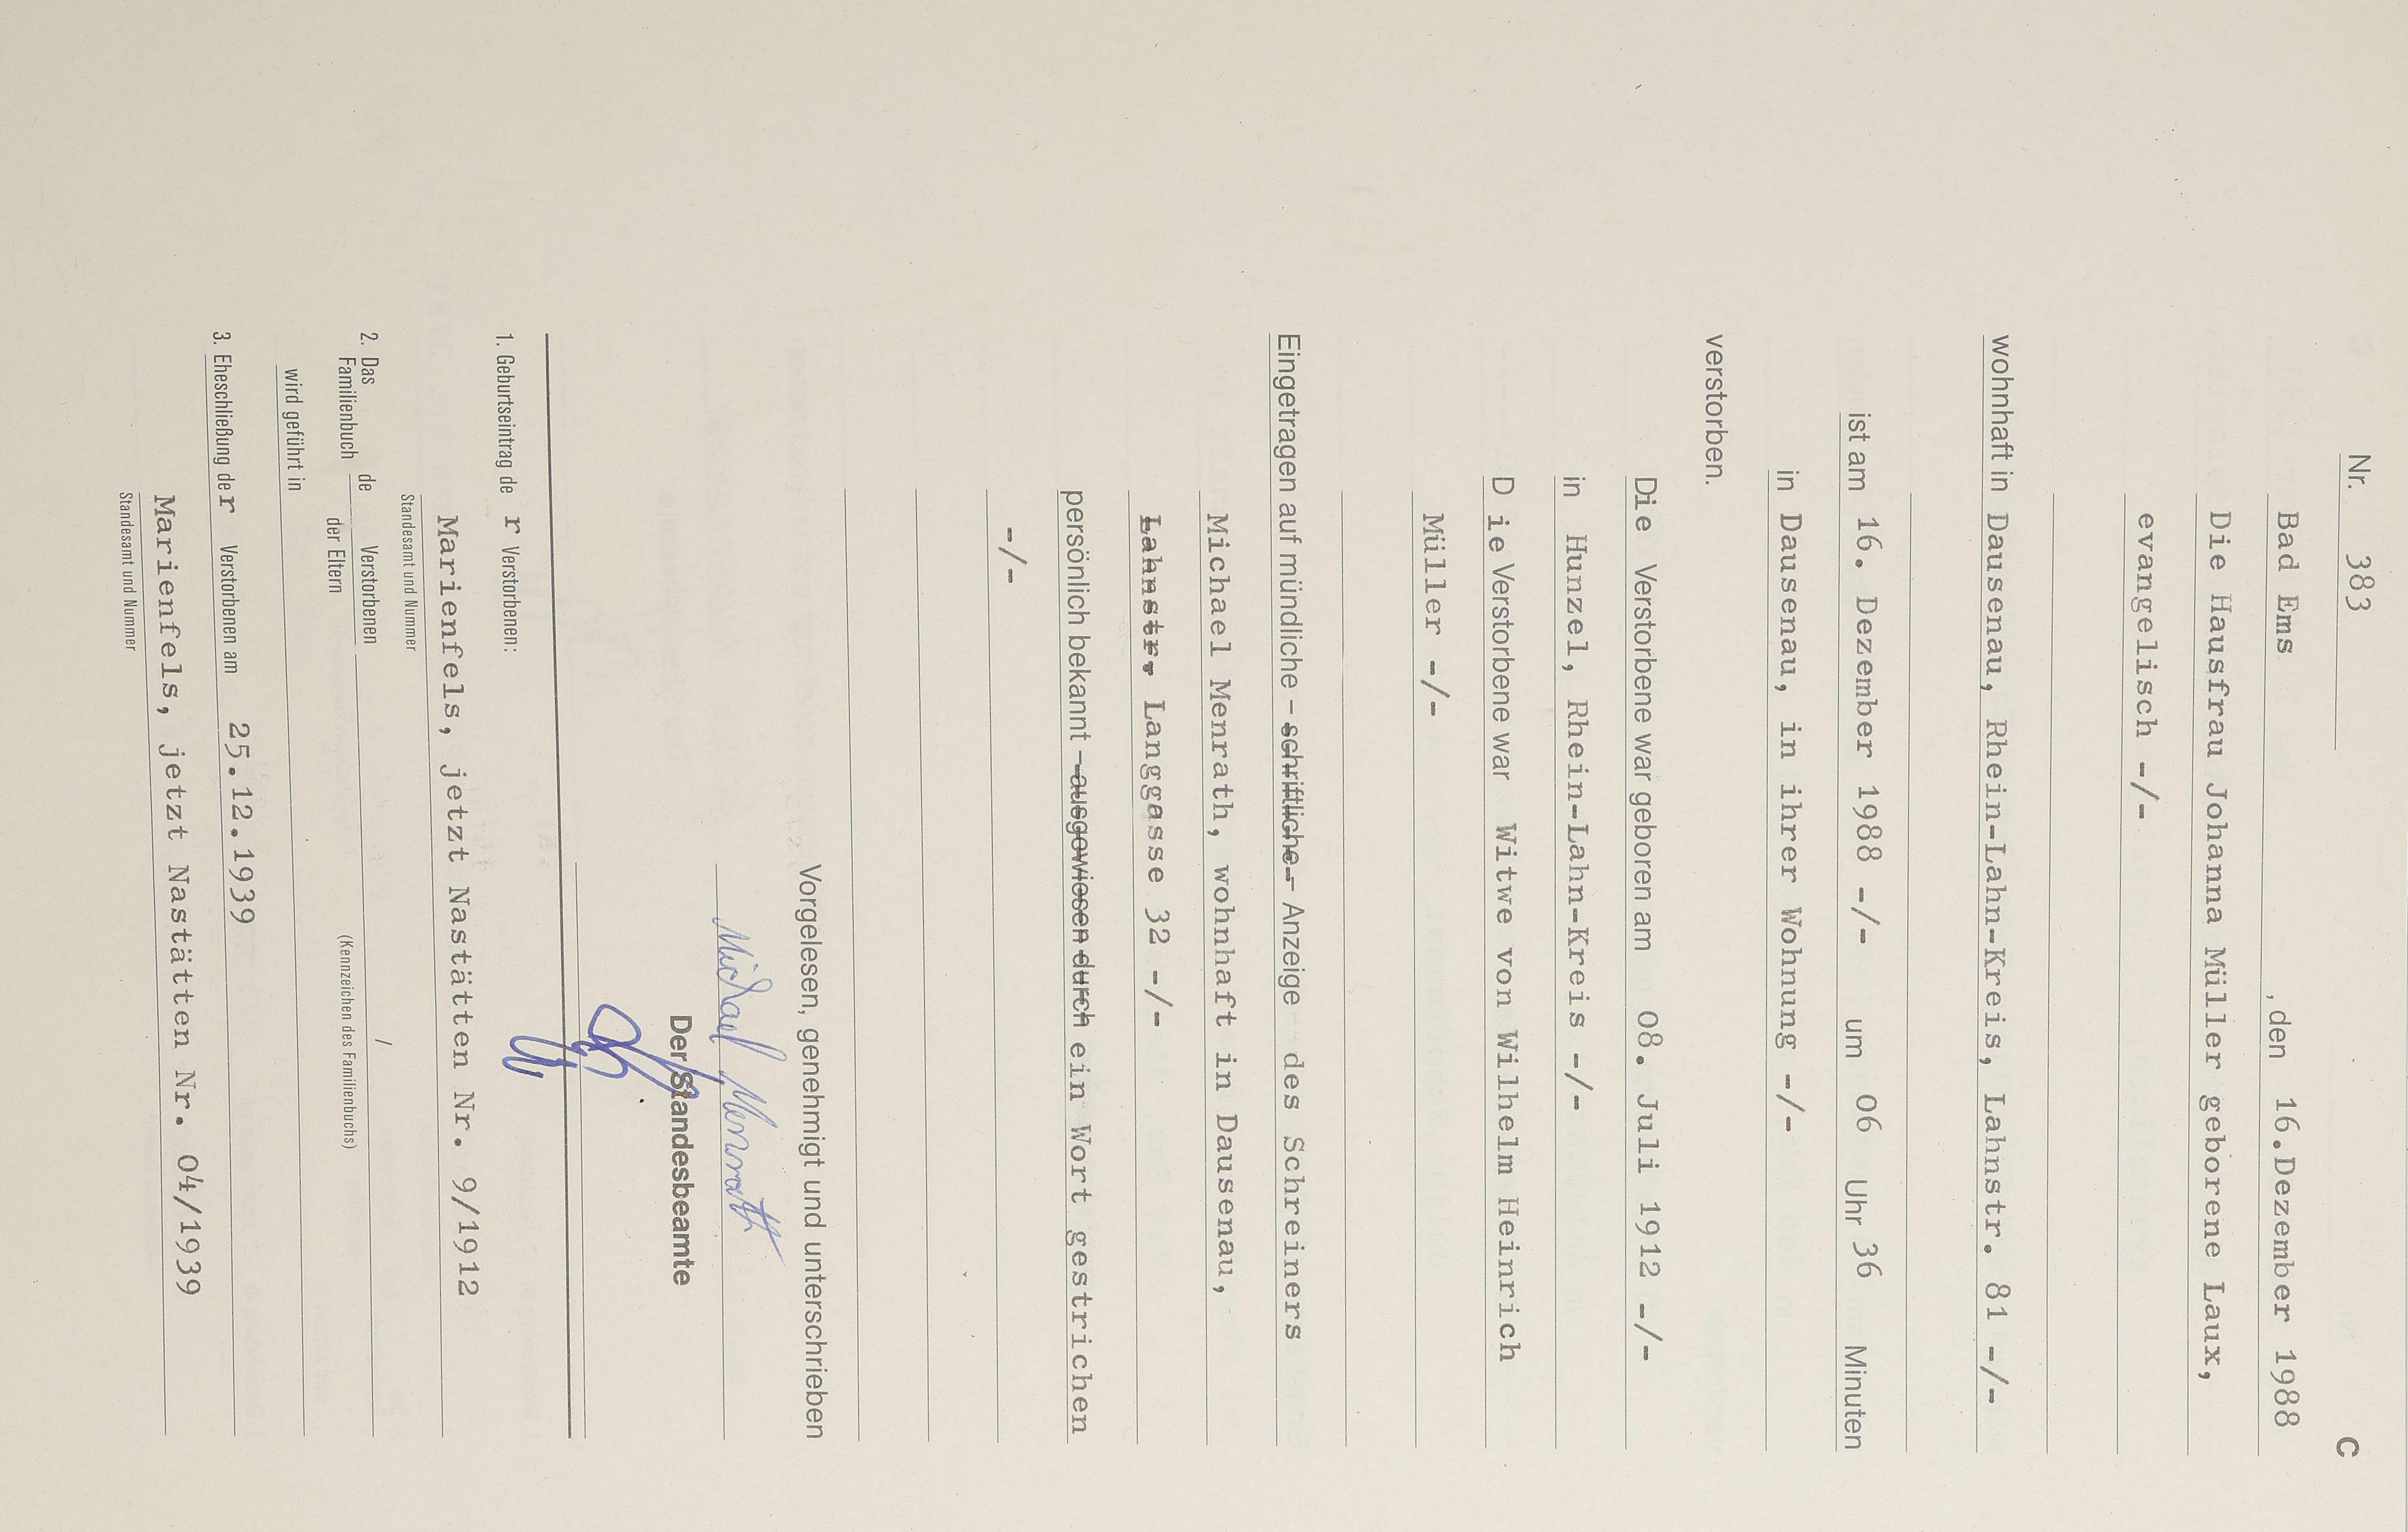 C
Nr. 383
Bad Ems , den 16.Dezember 1988
Die Hausfrau Johanna Müller geborene Laux,
evangelisch -/-
wohnhaft in Dausenau, Rhein-Lahn-Kreis, Lahnstr. 81 -/-
ist am 16. Dezember 1988 -/- um 06 Uhr 36 Minuten
in Dausenau, in ihrer Wohnung -/-
verstorben.
Die Verstorbene war geboren am 08. Juli 1912 -/-
in Hunzel, Rhein-Lahn-Kreis -/-
D ie Verstorbene war Witwe von Wilhelm Heinrich
Müller -/-
Eingetragen auf mündliche - schriftliche - Anzeige des Schreiners
Michael Menrath, wohnhaft in Dausenau,
Lahnstr. Langgasse 32 -/-
persönlich bekannt - ausgewiesen durch ein Wort gestrichen
-/-
Vorgelesen, genehmigt und unterschrieben
Michael Menrath
Der Standesbeamte
1. Geburtseintrag de r Verstorbenen:
Marienfels, jetzt Nastätten Nr. 9/1912
Standesamt und Nummer
2. Das Familienbuch de Verstorbenen /
der Eltern (Kennzeichen des Familienbuchs)
wird geführt in
3. Eheschließung der Verstorbenen am 25.12.1939
Marienfels, jetzt Nastätten Nr. 04/1939
Standesamt und Nummer